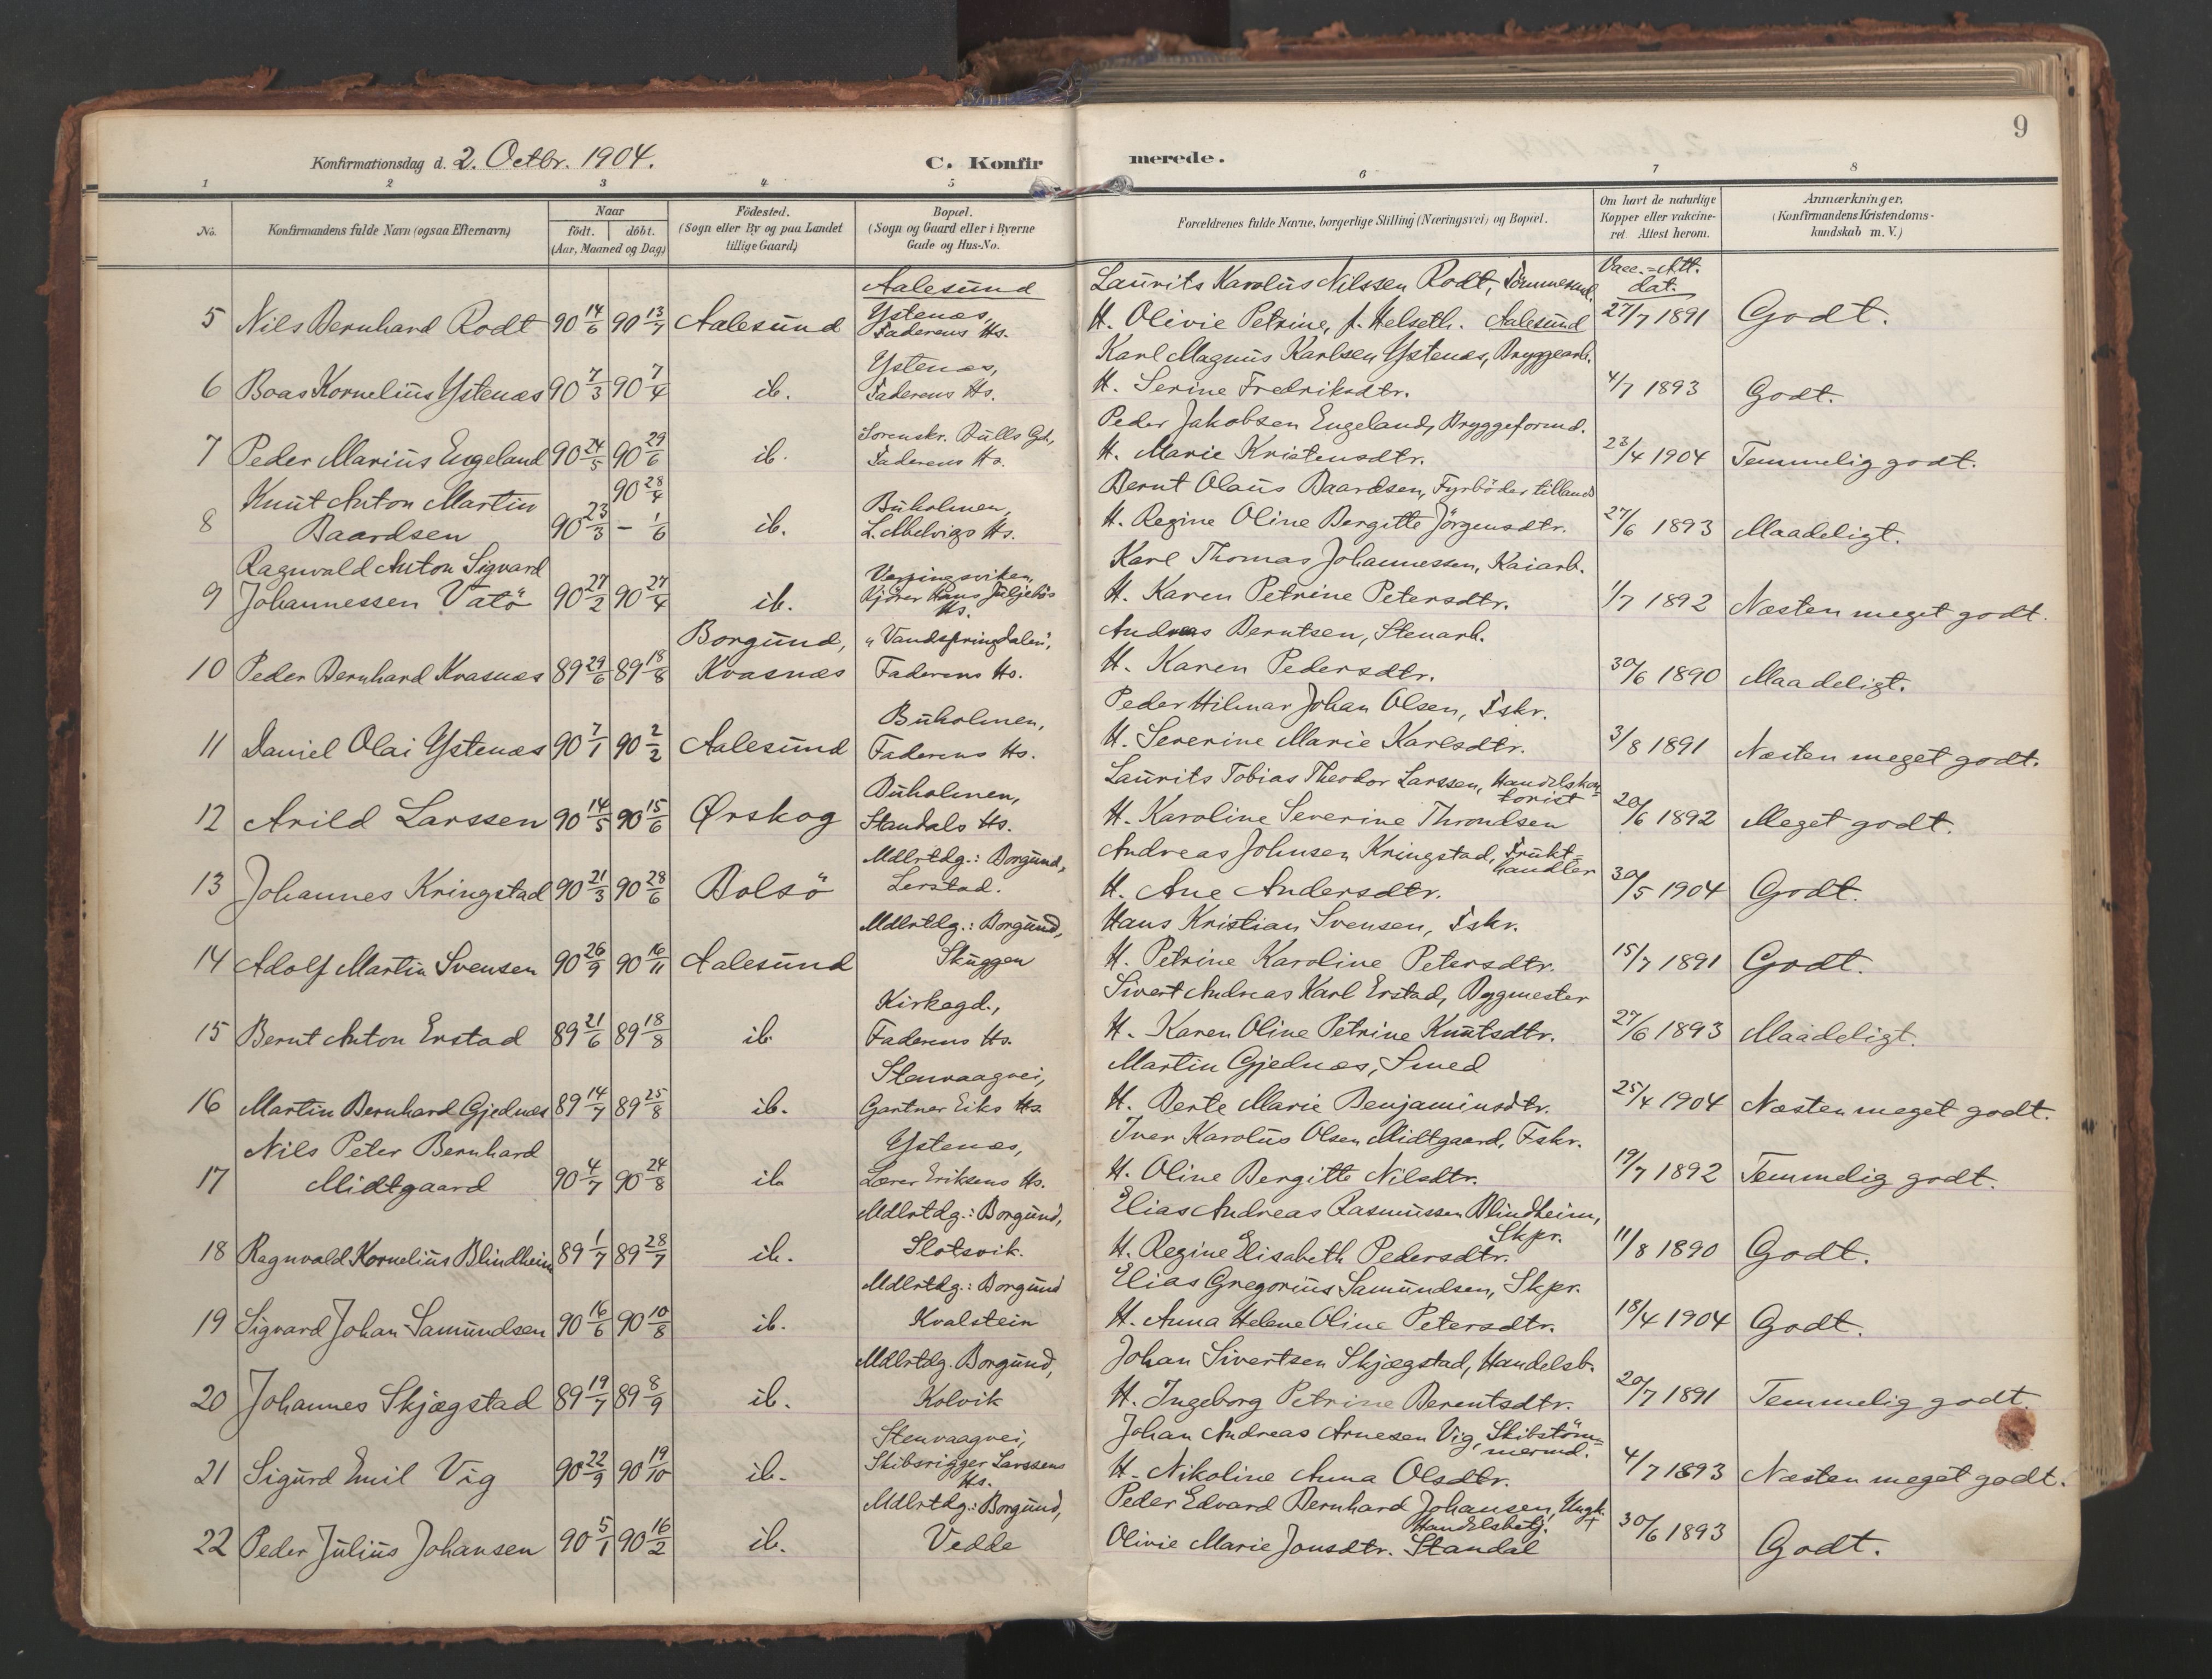 9
Konfirmationsdag d. 2. Octbr. 1904. C. Konfirmerede.
1 2 3 4 5 6 7 8
No. Konfirmandens fulde Navn (ogsaa Efternavn) Naar födt. döbt. (Aar, Maaned og Dag) Födested. (Sogn eller By og paa Landet tillige Gaard) Bopæl. (Sogn og Gaard eller i Byerne Gade og Hus-No. Forældrenes fulde Navne, borgerlige Stilling (Næringsvei) og Bopæl. Om havt de naturlige Kopper eller vakcineret Attest herom. Anmærkninger. (Konfirmandens Kristendomskundskab m. V.)
Aalesund Laurits Karolus Nilssen Rodt, Tömmermd. Vacc.=Att. dat.
5 Nils Bernhard Rodt 90 14/6 90 13/7 Aalesund Ystenæs, Faderens Hs. H. Olivie Petrine, f. Helseth. Aalesund 27/7 1891 Godt.
Ystenæs, Karl Magnus Karlsen Ystenæs, Bryggearb.
6 Boas Kornelius Ystenæs 90 7/3 90 7/4 ib. Faderens Hs. H. Serine Fredriksdtr. 4/7 1893 Godt.
Sorenskr. Bulls Gd., Peder Jakobsen Engeland, Bryggeformd.
7 Peder Marius Engeland 90 24/5 90 29/6 ib. Faderens Hs. H. Marie Kristensdtr. 23/4 1904 Temmelig godt.
Knut Anton Martin 90 28/4 Buholmen, Bernt Olaus Baardsen, Fyrböder tillands
8 Baardsen 90 23/3 - 1/6 ib. L. Melvigs Hs. H. Regine Oline Bergitte Jörgensdtr. 27/6 1893 Maadeligt.
Ragnvald Anton Sigvard Verpingsviken, Karl Thomas Johannessen, Kaiarb.
9 Johannessen Vatö 90 27/2 90 27/4 ib. Kjörer Hans Juljebös Hs. H. Karen Petrine Petersdtr. 1/7 1892 Næsten meget godt.
Borgund, "Vandspringdalen", Andreas Berntsen, Stenarb.
10 Peder Bernhard Kvasnæs 89 29/6 89 18/8 Kvasnæs Faderens Hs. H. Karen Pedersdtr. 30/6 1890 Maadeligt.
Buholmen, Peder Hilmar Johan Olsen, Fskr.
11 Daniel Olai Ystenæs 90 7/1 90 2/2 Aalesund Faderens Hs. H. Severine Marie Karlsdtr. 3/8 1891 Næsten meget godt.
Buholmen, Laurits Tobias Theodor Larssen, Handelskontorist
12 Arild Larssen 90 14/5 90 15/6 Ørskog Standals Hs. H. Karoline Severine Throndsen 20/6 1892 Meget godt.
Mdlrtdg.: Borgund, Andreas Johnsen Kringstad, Frukthandler
13 Johannes Kringstad 90 21/3 90 28/6 Bolsö Lerstad. H. Ane Andersdtr. 30/5 1904 Godt.
Mdlrtdg.: Borgund, Hans Kristian Svensen, Fskr.
14 Adolf Martin Svensen 90 26/9 90 16/11 Aalesund Skuggen H. Petrine Karoline Petersdtr. 15/7 1891 Godt.
Kirkegd., Sivert Andreas Karl Erstad, Bygmester
15 Bernt Anton Erstad 89 21/6 89 18/8 ib. Faderens Hs. H. Karen Oline Petrine Knutsdtr. 27/6 1893 Maadeligt.
Stenvaagvei, Martin Gjednæs, Smed
16 Martin Bernhard Gjednæs 89 14/7 89 25/8 ib. Gartner Eiks Hs. H. Berte Marie Benjaminsdtr. 25/4 1904 Næsten meget godt.
Nils Peter Bernhard Ystenæs, Iver Karolus Olsen Midtgaard, Fskr.
17 Midtgaard 90 4/7 90 24/8 ib. Lærer Eriksens Hs. H. Oline Bergitte Nilsdtr. 19/7 1892 Temmelig godt.
Mdlrtdg.: Borgund, Elias Andreas Rasmussen Blindheim, Skpr.
18 Ragnvald Kornelius Blindheim 89 1/7 89 28/7 ib. Slotsvik. H. Regine Elisabeth Pedersdtr. 11/8 1890 Godt.
Mdlrtdg.: Borgund Elias Gregorius Samundsen, Skpr.
19 Sigvard Johan Samundsen 90 16/6 90 10/8 ib. Kvalstein H. Anna Helene Oline Petersdtr. 18/4 1904 Godt.
Mdlrtdg. Borgund, Johan Sivertsen Skjægstad, Handelsb.
20 Johannes Skjægstad 89 19/7 89 8/9 ib. Kolvik H. Ingeborg Petrine Berentsdtr. 20/7 1891 Temmelig godt.
Stenvaagvei, Johan Andreas Arnesen Vig, Skibstömmermd.
21 Sigurd Emil Vig 90 22/9 90 19/10 ib. Skibsrigger Larssens Hs. H. Nikoline Anna Olsdtr. 4/7 1893 Næsten meget godt.
Mdlrtdg.: Borgund, Peder Edvard Bernhard Johansen, Ungk. Handelsbetj. +
22 Peder Julius Johansen 90 5/1 90 16/2 ib. Vedde Olivie Marie Jonsdtr. Standal 30/6 1893 Godt.